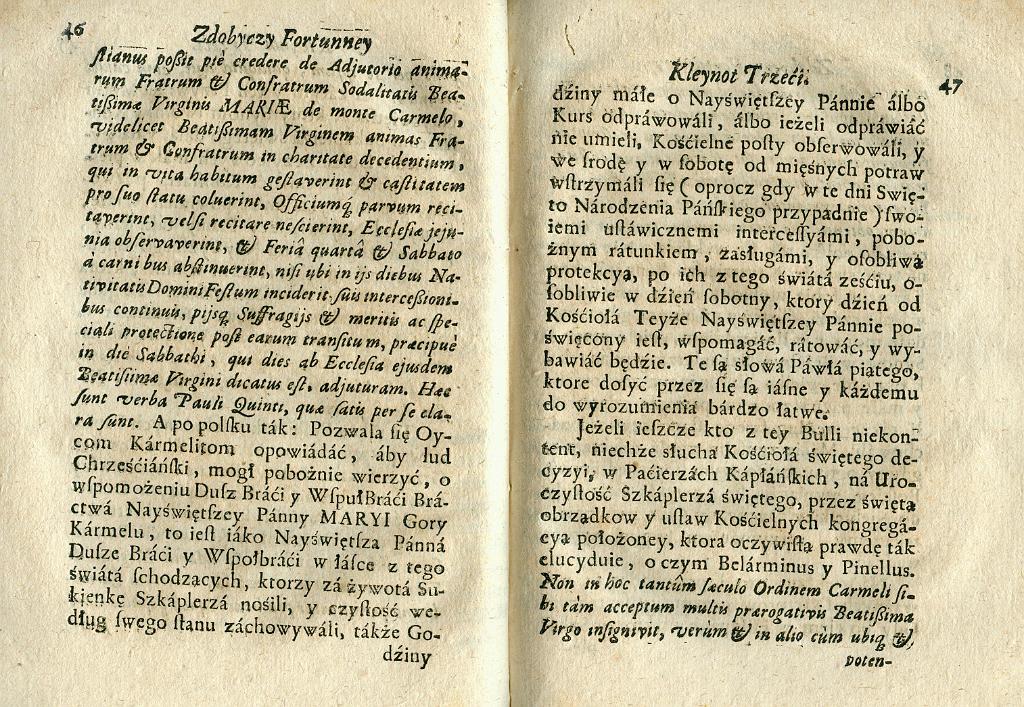 46
Zdobyczy Fortunney
ſtianus poßit piè credere de Adjutorio anima-
rum Fratrum & Confratrum Sodalitatis Bea-
tißimæ Virginis MARIÆ de monte Carmelo,
videlicet Beatißimam Virginem animas Fra-
trum & Confratrum in charitate decedentium,
qui in vita habitum geſtaverint & caſtitatem
pro ſuo ſtatu coluerint, Officiumq́ parvum reci-
taverint, vel ſi recitare neſcierint, Eccleſiæ jeju-
nia obſervaverint, & Feriâ quartâ & Sabbato
à carnibus abſtinuerint, niſi ubi in ijs diebus Na-
tivitatis Domini Feſtum inciderit ſuis interceßioni-
bus continuis, pijsq́ Suffragijs & meritis ac ſpe-
ciali protectione poſt earum tranſitum, præcipuè
in die Sabbathi, qui dies ab Eccleſia ejusdem
Beatiſſimæ Virgini dicatus eſt, adjuturam. Hæc
ſunt verba Pauli Quinti, quæ ſatis per ſe cla-
ra ſunt. A po polſku ták: Pozwala ſię Oy-
com Kármelitom opowiádáć, áby lud
Chrześćiáńſki, mogł pobożnie wierzyć, o
wſpomożeniu Duſz Bráći y WſpułBráći Brá-
ctwá Nayświętſzey Pánny MARYI Gory
Kármelu, to ieſt iáko Nayświętſza Pánná
Duſze Bráći y Wſpołbráći w łáſce z tego
świátá ſchodzących, ktorzy zá żywotá Su-
kienkę Szkáplerzá nośili, y czyſtość we-
dług ſwego ſtanu záchowywáli, tákże Go-
dźiny
Kleynot Trzeći.
47
dźiny máłe o Nayświętſzey Pánnie álbo
Kurs odpráwowáli, álbo ieżeli odpráwiáć
nie umieli, Kośćielne poſty obſerwowáli, y
we ſrodę y w ſobotę od mięsnych potraw
wſtrzymáli ſię ( oprocz gdy w te dni Swię-
to Národzenia Páńſkiego przypadnie ) ſwo-
iemi uſtáwicznemi interceſſyámi, pobo-
żnym rátunkiem, zasługámi, y oſobliwą
protekcyą, po ich z tego świátá zeſćiu, o-
ſobliwie w dźień ſobotny, ktory dźień od
Kośćiołá Teyże Nayświętſzey Pánnie po-
święcony ieſt, wſpomagáć, rátowáć, y wy-
báwiáć będźie. Te są słowá Páwłá piątego,
ktore doſyć przez ſię są iáſne y káżdemu
do wyrozumienia bárdzo łatwe.
Jeżeli ieſzcze kto z tey Bulli niekon-
tent, niechże słucha Kośćiołá świętego de-
cyzyi, w Paćierzách Kápłáńſkich, ná Uro-
czyſtość Szkáplerzá świętego, przez świętą
obrządkow y uſtaw Kośćielnych kongregá-
cyą położoney, ktora oczywiſtą prawdę ták
elucyduie, o czym Belárminus y Pinellus.
Non in hoc tantùm ſæculo Ordinem Carmeli ſi-
bi tàm acceptum multis prærogativis Beatißima
Virgo inſignivit, verùm & in alio cùm ubiq́ &
poten-